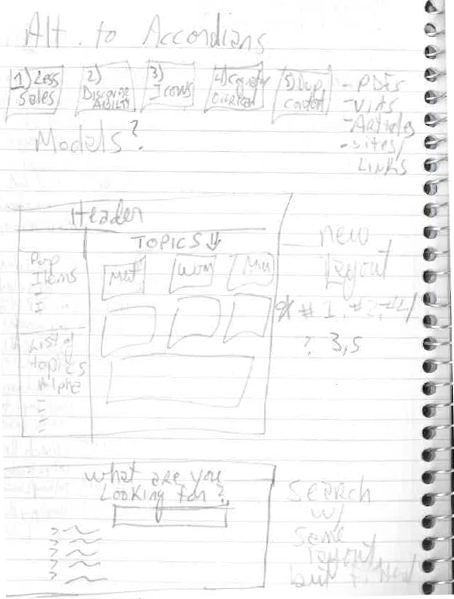 Alt. to Accordians
1) Less Sales
2) Discover Ability
3) Icons
4) Cognitive Overload
5) Dup Content
- PDFs
- Vids
- Articles
- Sites/
Links
Models?
Header
TOPICS
Pop
Items
List of
topics
Alpha
new
Layout
# 1, #2, #4
? 3,5
what are you
Looking for?
Search
w/
Same
layout
but